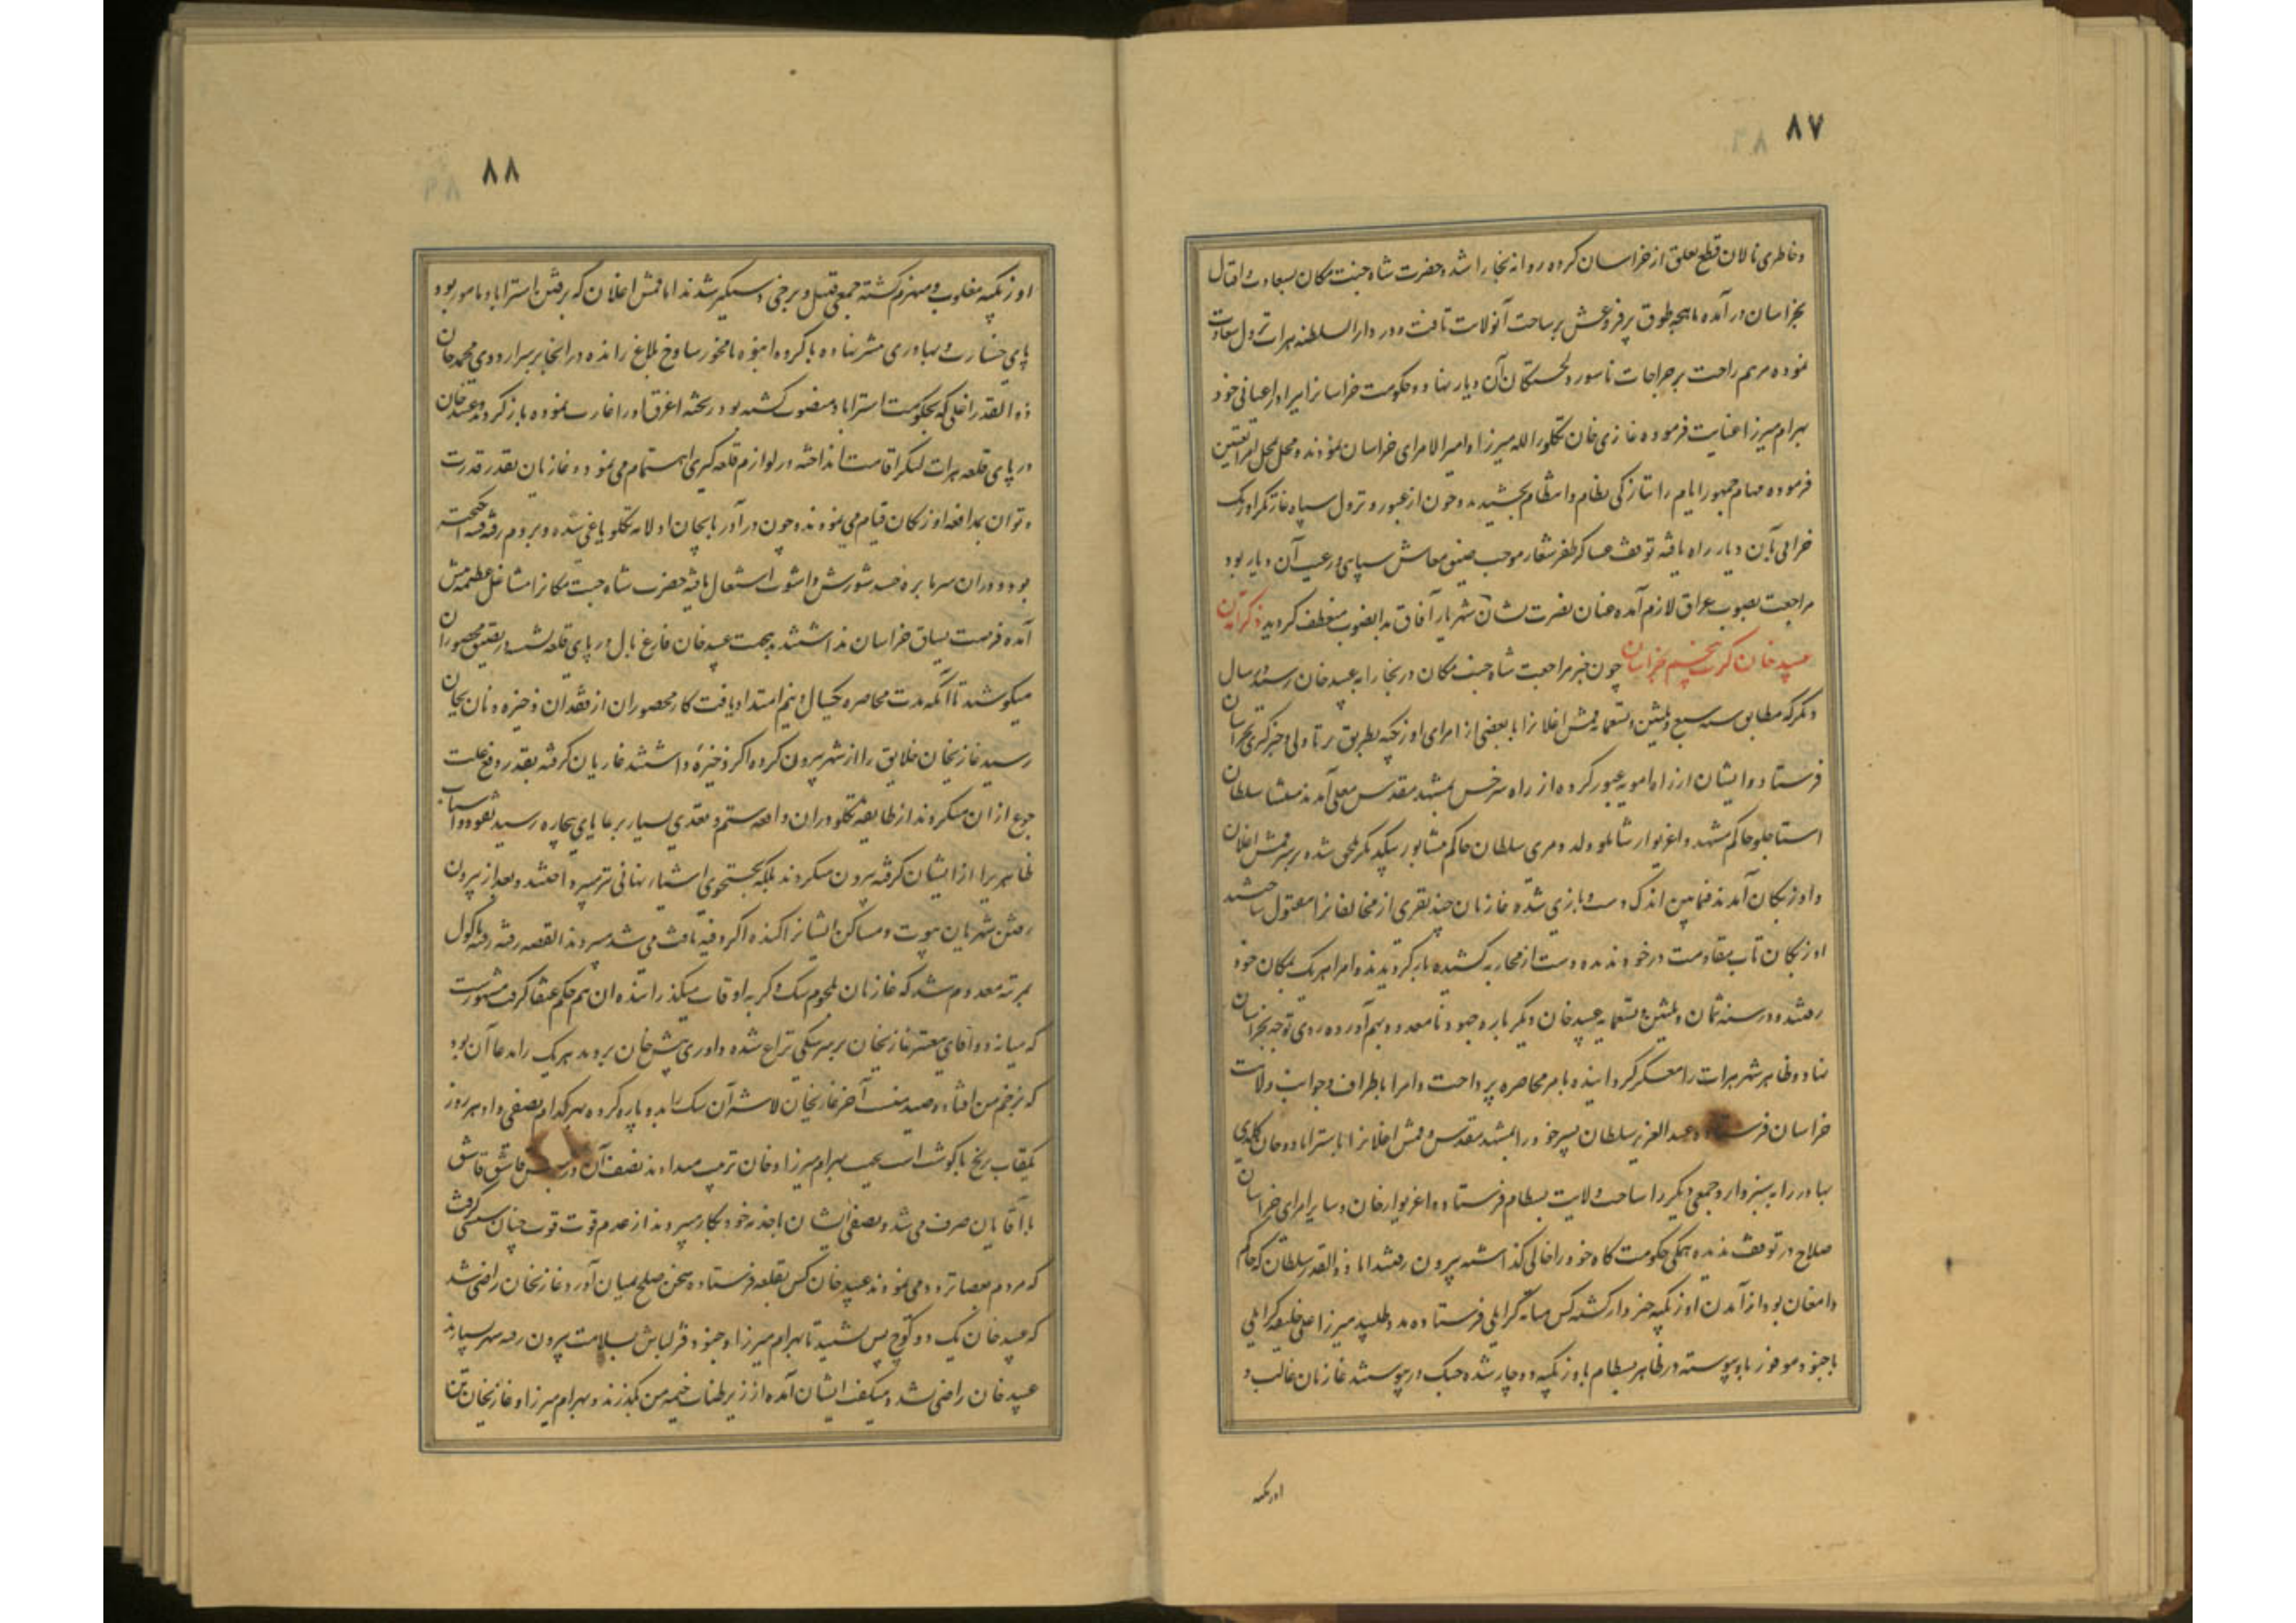 ۸۷
و خاطری نالان قطع تعلق از خراسان کرده روانه بخارا شد و حضرت شاه جنت مکان بسعادت و اقبال
بخراسان در آمده ماهچه طوق پر فروغش بر ساحت آنولایت تافت و در دار السلطنه هرات نزول سعادت
نموده مرهم راحت بر جراحات ناسور دلخستگان آن دیار نهاد و حکومت خراسانرا ببرادر اعیانی خود
بهرام میرزا عنایت فرموده غازی خان تکلو را لله میرزا و امیر الامرای خراسان نمودند و محل بمحل امرا تعیین
فرموده مهام جمهور انام را بتازگی نظام و انتظام بخشیدند و چون از عبور و نزول سپاه غارتگر اوزبک
خرابی بآن دیار راه یافته توقف عساکر ظفر شعار موجب ضیق معاش سپاهی و رعیت آن دیار بود
مراجعت بصوب عراق لازم آمده عنان نصرت نشان شهریار آفاق بدانصوب منعطف گردید ذکر آمدن
عبید خان کرت پنجم بخراسان چون خبر مراجعت شاه جنت مکان در بخارا به عبید خان رسید در سال
دیگر که مطابق سنه سبع و ثلثین و تسعمایه قمش اغلانرا با بعضی از امرای اوزبکیه بطریق برتاولی و خبرگیری بخراسان
فرستاد و ایشان از راه آمویه عبور کرده از راه سرخس بمشهد مقدس معلی آمدند منتشا سلطان
استاجلو حاکم مشهد و اغزیوار شاملو ولد دمری سلطان حاکم نشابور بیکدیگر ملحق شده بر سر قمش اغلان
و اوزبکان آمدند فیمابین اندک دست و بازی شده غازیان چند نفری از مخالفانرا مقتول ساختند
اوزبکان تاب مقاومت در خود ندیده دست از محاربه کشیده باز گردیدند و امرا هر یک بمکان خود
رفتند و در سنه ثمان و ثلثین و تسعمایه عبید خان دیگر باره جنود نامعدود بهم آورده روی توجه بخراسان
نهاد و ظاهر شهر هرات را معسکر گردانیده بامر محاصره پرداخت و امرا باطراف و جوانب ولایت
خراسان فرستاد و عبد العزیز سلطان پسر خود را بمشهد مقدس و قمش اغلانرا باستراباد و خان کلدی
بهادر را به سبزوار و جمعی دیگر را بساحت ولایت بسطام فرستاد و اغزیوار خان و سایر امرای خراسان
صلاح در توقف ندیده همگی حکومت گاه خود را خالی گذاشته بیرون رفتند اما ذو القدر سلطان که حاکم
دامغان بود از آمدن اوزبکیه خبردار گشته کس میانه گرایلی فرستاده مدد طلبید میرزا علی خلیفه گرایلی
با جنود موفور باو پیوسته در ظاهر بسطام باوزبکیه دوچار شده جنگ در پیوستند غازیان غالب و
اوزبکیه
۸۸
اوزبکیه مغلوب و منهزم گشته جمعی قتیل و برخی دستگیر شدند اما قمش اغلان که برفتن استراباد مامور بود
پای جسارت و بهادری پیشتر نهاده با گروه انبوه نامحصور بساوخ بلاغ رانده در آنجا بر سر اردوی محمد خان
ذو القدر اغلی که بحکومت استراباد منصوب گشته بود ریخته اغرق او را غارت نموده باز گردید و عبید خان
در پای قلعه هرات لنگر اقامت انداخته در لوازم قلعه گیری اهتمام می نمود و غازیان بقدر قدرت
و توان بمدافعه اوزبکان قیام می نمودند و چون در آذربایجان اولامه تکلو یاغی شده و بروم رفته فتنه انگیخته
بود و دوران سر نابره فساد و شورش و آشوب اشتعال یافته حضرت شاه جنت مکانرا مشاغل عظیمه پیش
آمده فرصت یساق خراسان نداشتند بدینجهت عبید خان فارغ بال در پای قلعه نشسته در تضییق محصوران
میکوشید تا آنکه مدت محاصره یکسال و نیم امتداد یافت کار محصوران از فقدان ذخیره و نان بجان
رسید غازیخان خلایق را از شهر بیرون کرده اگر ذخیره داشتند غازیان گرفته بقدر دفع علت
جوع از آن میکردند از طایفه تکلو در آن واقعه ستم و تعدی بسیار بر عایای بیچاره رسید نقود و اسباب
ظاهری را از ایشان گرفته بیرون میکردند بلکه بجستجوی اشیاء نهانی نیز میپرداختند و بعد از بیرون
رفتن شهریان بیوت و مساکن ایشانرا کنده اگر دفینه یافت می شد میبردند القصه رفته رفته ماکول
بمرتبه معدوم شد که غازیان بلحوم سک و گربه اوقات میگذرانیدند آن هم حکم عنقا گرفت مشهورست
که میانه دو آقای معتبر غازیخان بر سر سگی نزاع شده داوری پیش خان بردند هر یک را مدعا آن بود
که بزخم من افتاده و صید منست آخر غازیخان لاشه آن سک را بدو پاره کرده بهر کدام نصفی داد و هر روز
یکقاب برنج با گوشت اسب بجهت بهرام میرزا و خان ترتیب میدادند نصف آن در مجلس قاشق قاشق
بآقایان صرف می شد و نصفی ایشان باخذیه خود بکار میبردند از عدم قوت قوت چنان سستی گرفت
که مردم بعصا تردد می نمودند عبید خان کس بقلعه فرستاده سخن صلح بمیان آورد و غازیخان راضی شد
که عبید خان یک دو کوچ پس نشیند تا بهرام میرزا و جنود قزلباش بسلامت بیرون رفته شهر بسپارند
عبید خان راضی نشد و میگفت ایشان آمده از زیر طناب خیمه من بگذرند و بهرام میرزا و غازیخان تن